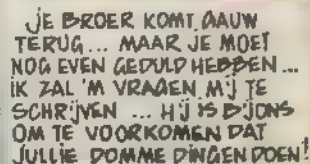 JE BROER KOMT GAUW
TERUG... MAAR JE MOET
NOG EVEN GEDULD HEBBEN...
IK ZAL 'M VRAGEN MIJ TE
SCHRIJVEN ... HIJ IS BIJ ONS
OM TE VOORKOMEN DAT
JULLIE DOMME DINGEN DOEN!